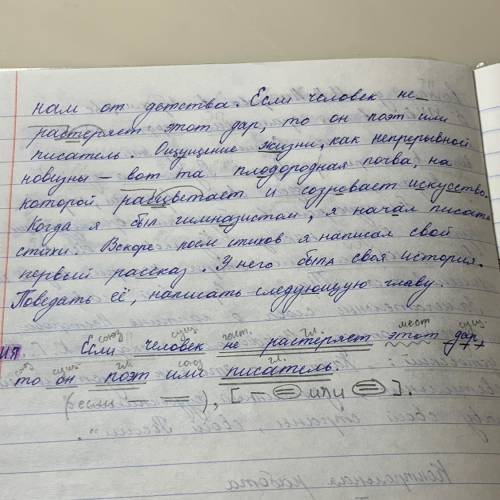 нам от детства. Если человек не
растеряет этот дар, то он поэт или
писатель. Ощущение жизни, как непрерывной
новизны – вот та плодородная почва, на
которой расцветает и созревает искусство.
Когда я был гимназистом, я начал писать
стихи. Вскоре посм стихов я написал свой
первый рассказ. У него была своя история.
Поведать её, написать следующую главу.
союз сущ. част. гл. мест сущ
Если человек не растеряет этот дар,
сущ. гл.
то он поэт или писатель.
(если — =), [— = или =].
Контрольная работа